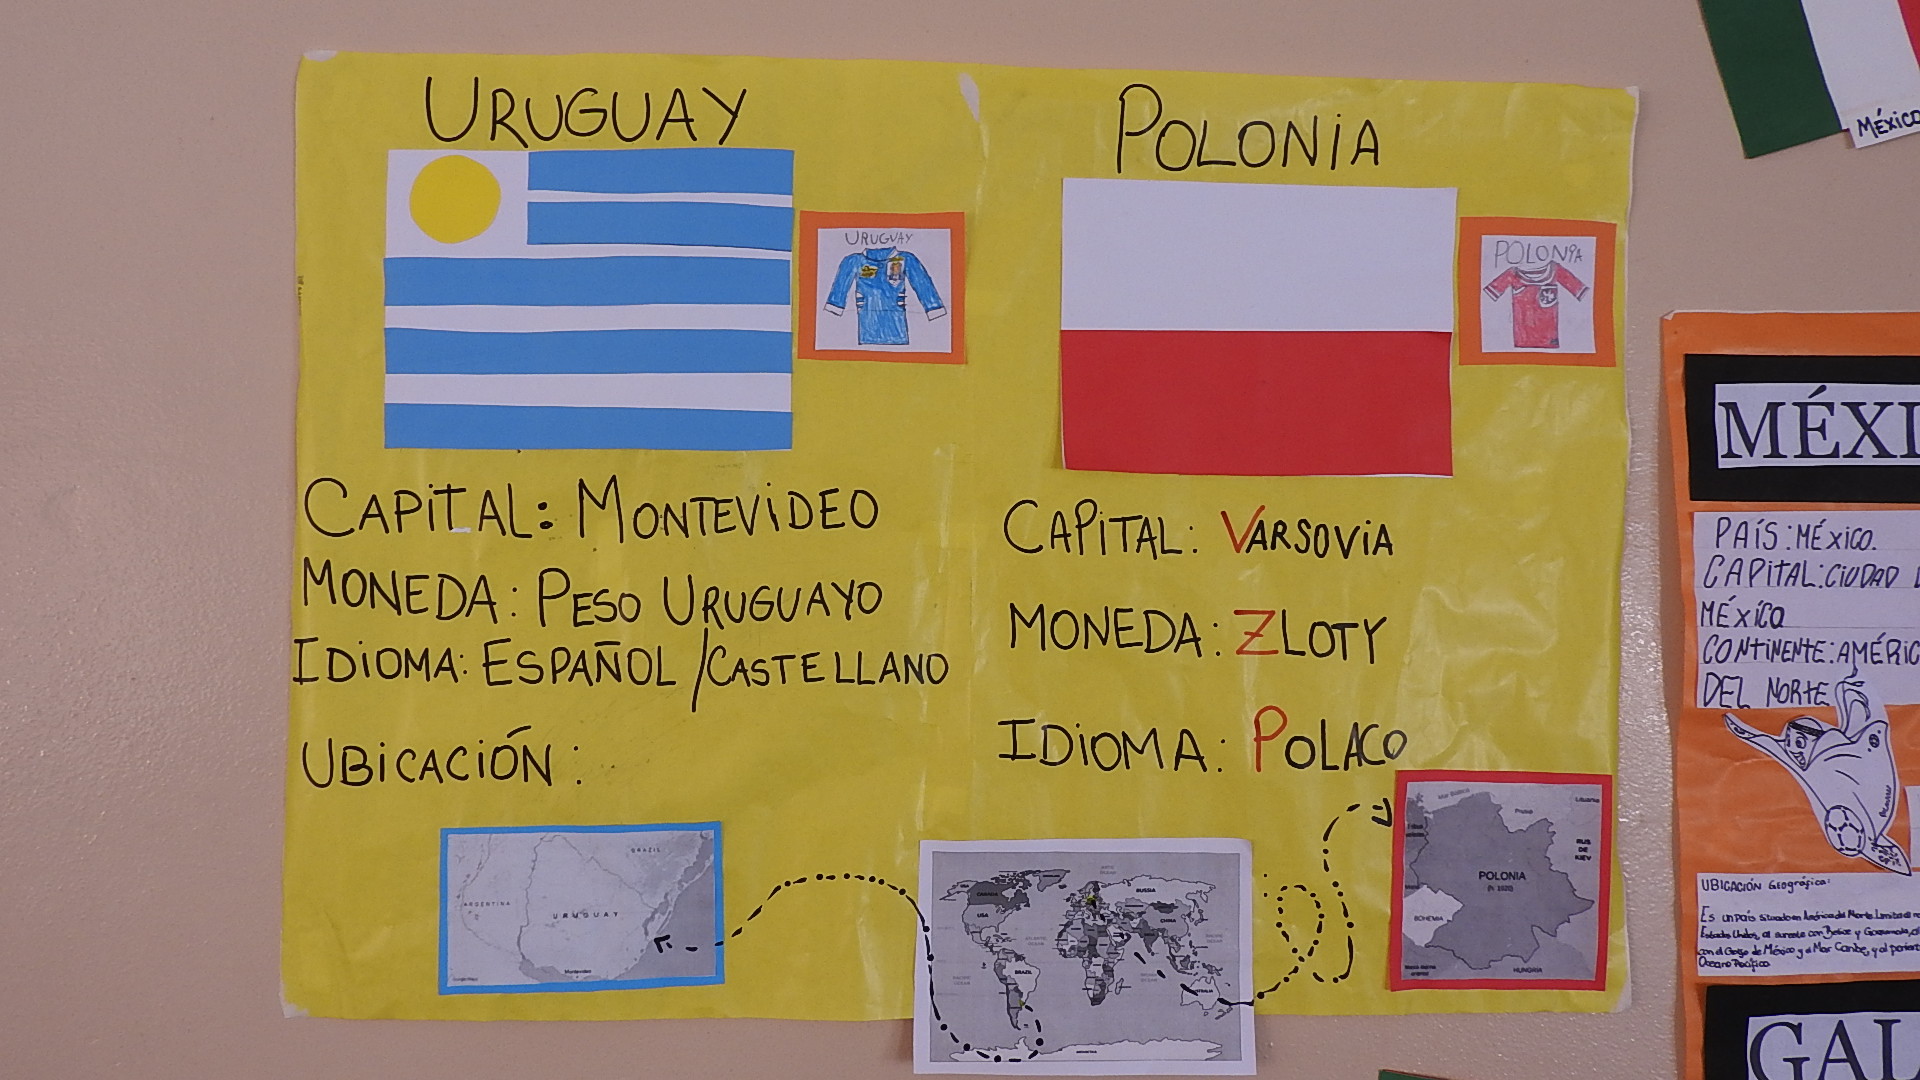 URUGUAY
URUGUAY
CAPITAL: MONTEVIDEO
MONEDA: PESO URUGUAYO
IDIOMA: ESPAÑOL / CASTELLANO
UBICACIÓN:
BRAZIL
ARGENTINA
URUGUAY
Montevideo
POLONIA
POLONIA
CAPITAL: VARSOVIA
MONEDA: ZLOTY
IDIOMA: POLACO
CANADA
RUSSIA
USA
CHINA
BRAZIL
Mar Báltico
Prusia
Lituania
RUS
DE
KIEV
POLONIA
BOHEMIA
HUNGRIA
México
MÉXI
PAÍS: MÉXICO.
CAPITAL: CIUDAD
MÉXICO
CONTINENTE: AMÉRIC
DEL NORTE
UBICACIÓN Geográfica:
Es un país situado en América del Norte. Limita al no
Estados Unidos, al sureste con Belice y Guatemala, al
con el Golfo de México y el Mar Caribe, y al
Océano Pacífico.
GAL